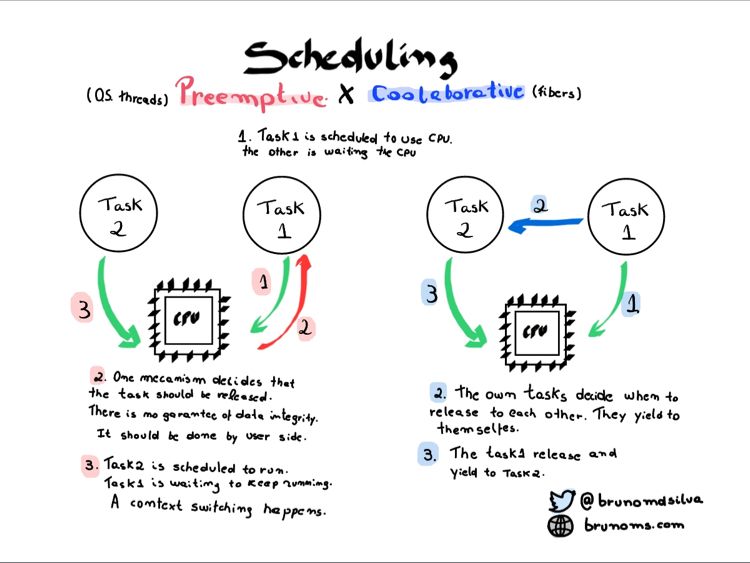 Scheduling
(O.S. threads) Preemptive X Coolaborative (fibers)
1. Task 1 is scheduled to use CPU.
the other is waiting the CPU
Task
2
Task
1
Task
2
2
Task
1
3
1
2
CPU
3
1
CPU
2. One mecanism decides that
the task should be released.
There is no garantee of data integrity.
It should be done by user side.
3. Task2 is scheduled to run.
Task1 is waiting to keep running.
A context switching happens.
2. The own tasks decide when to
release to each other. They yield to
themselfes.
3. The task1 release and
yield to Task2.
@brunomdsilva
brunoms.com